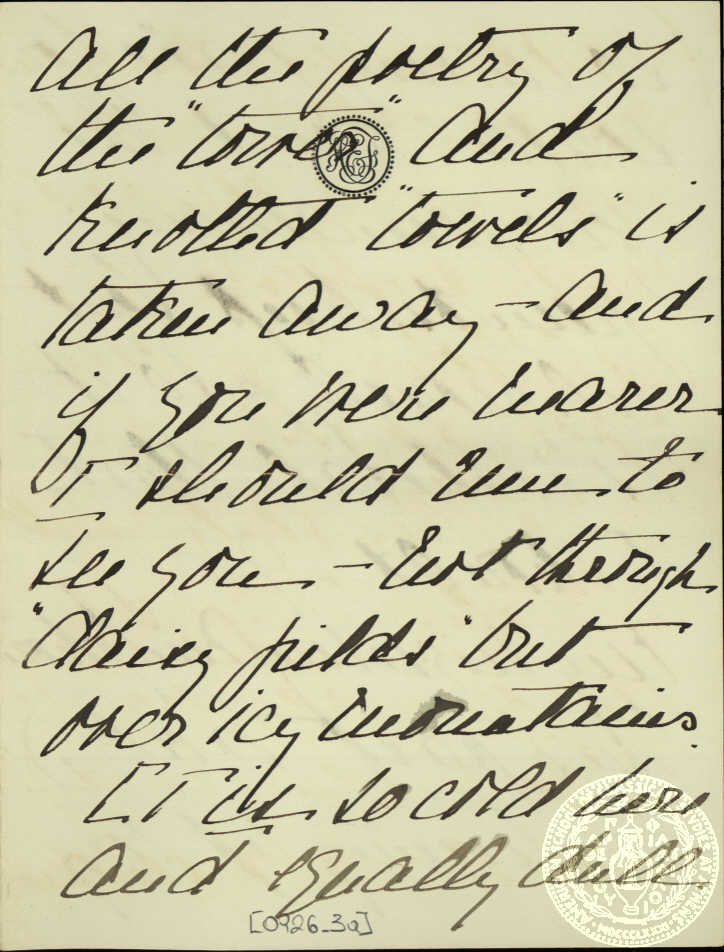 All the poetry of
the "tower" and
knotted "towels" is
taken away – and
if you were nearer
I should run to
see you – not through
"daisy fields" but
over icy mountains.
It is so cold here
and equally dull
[0926_3a]